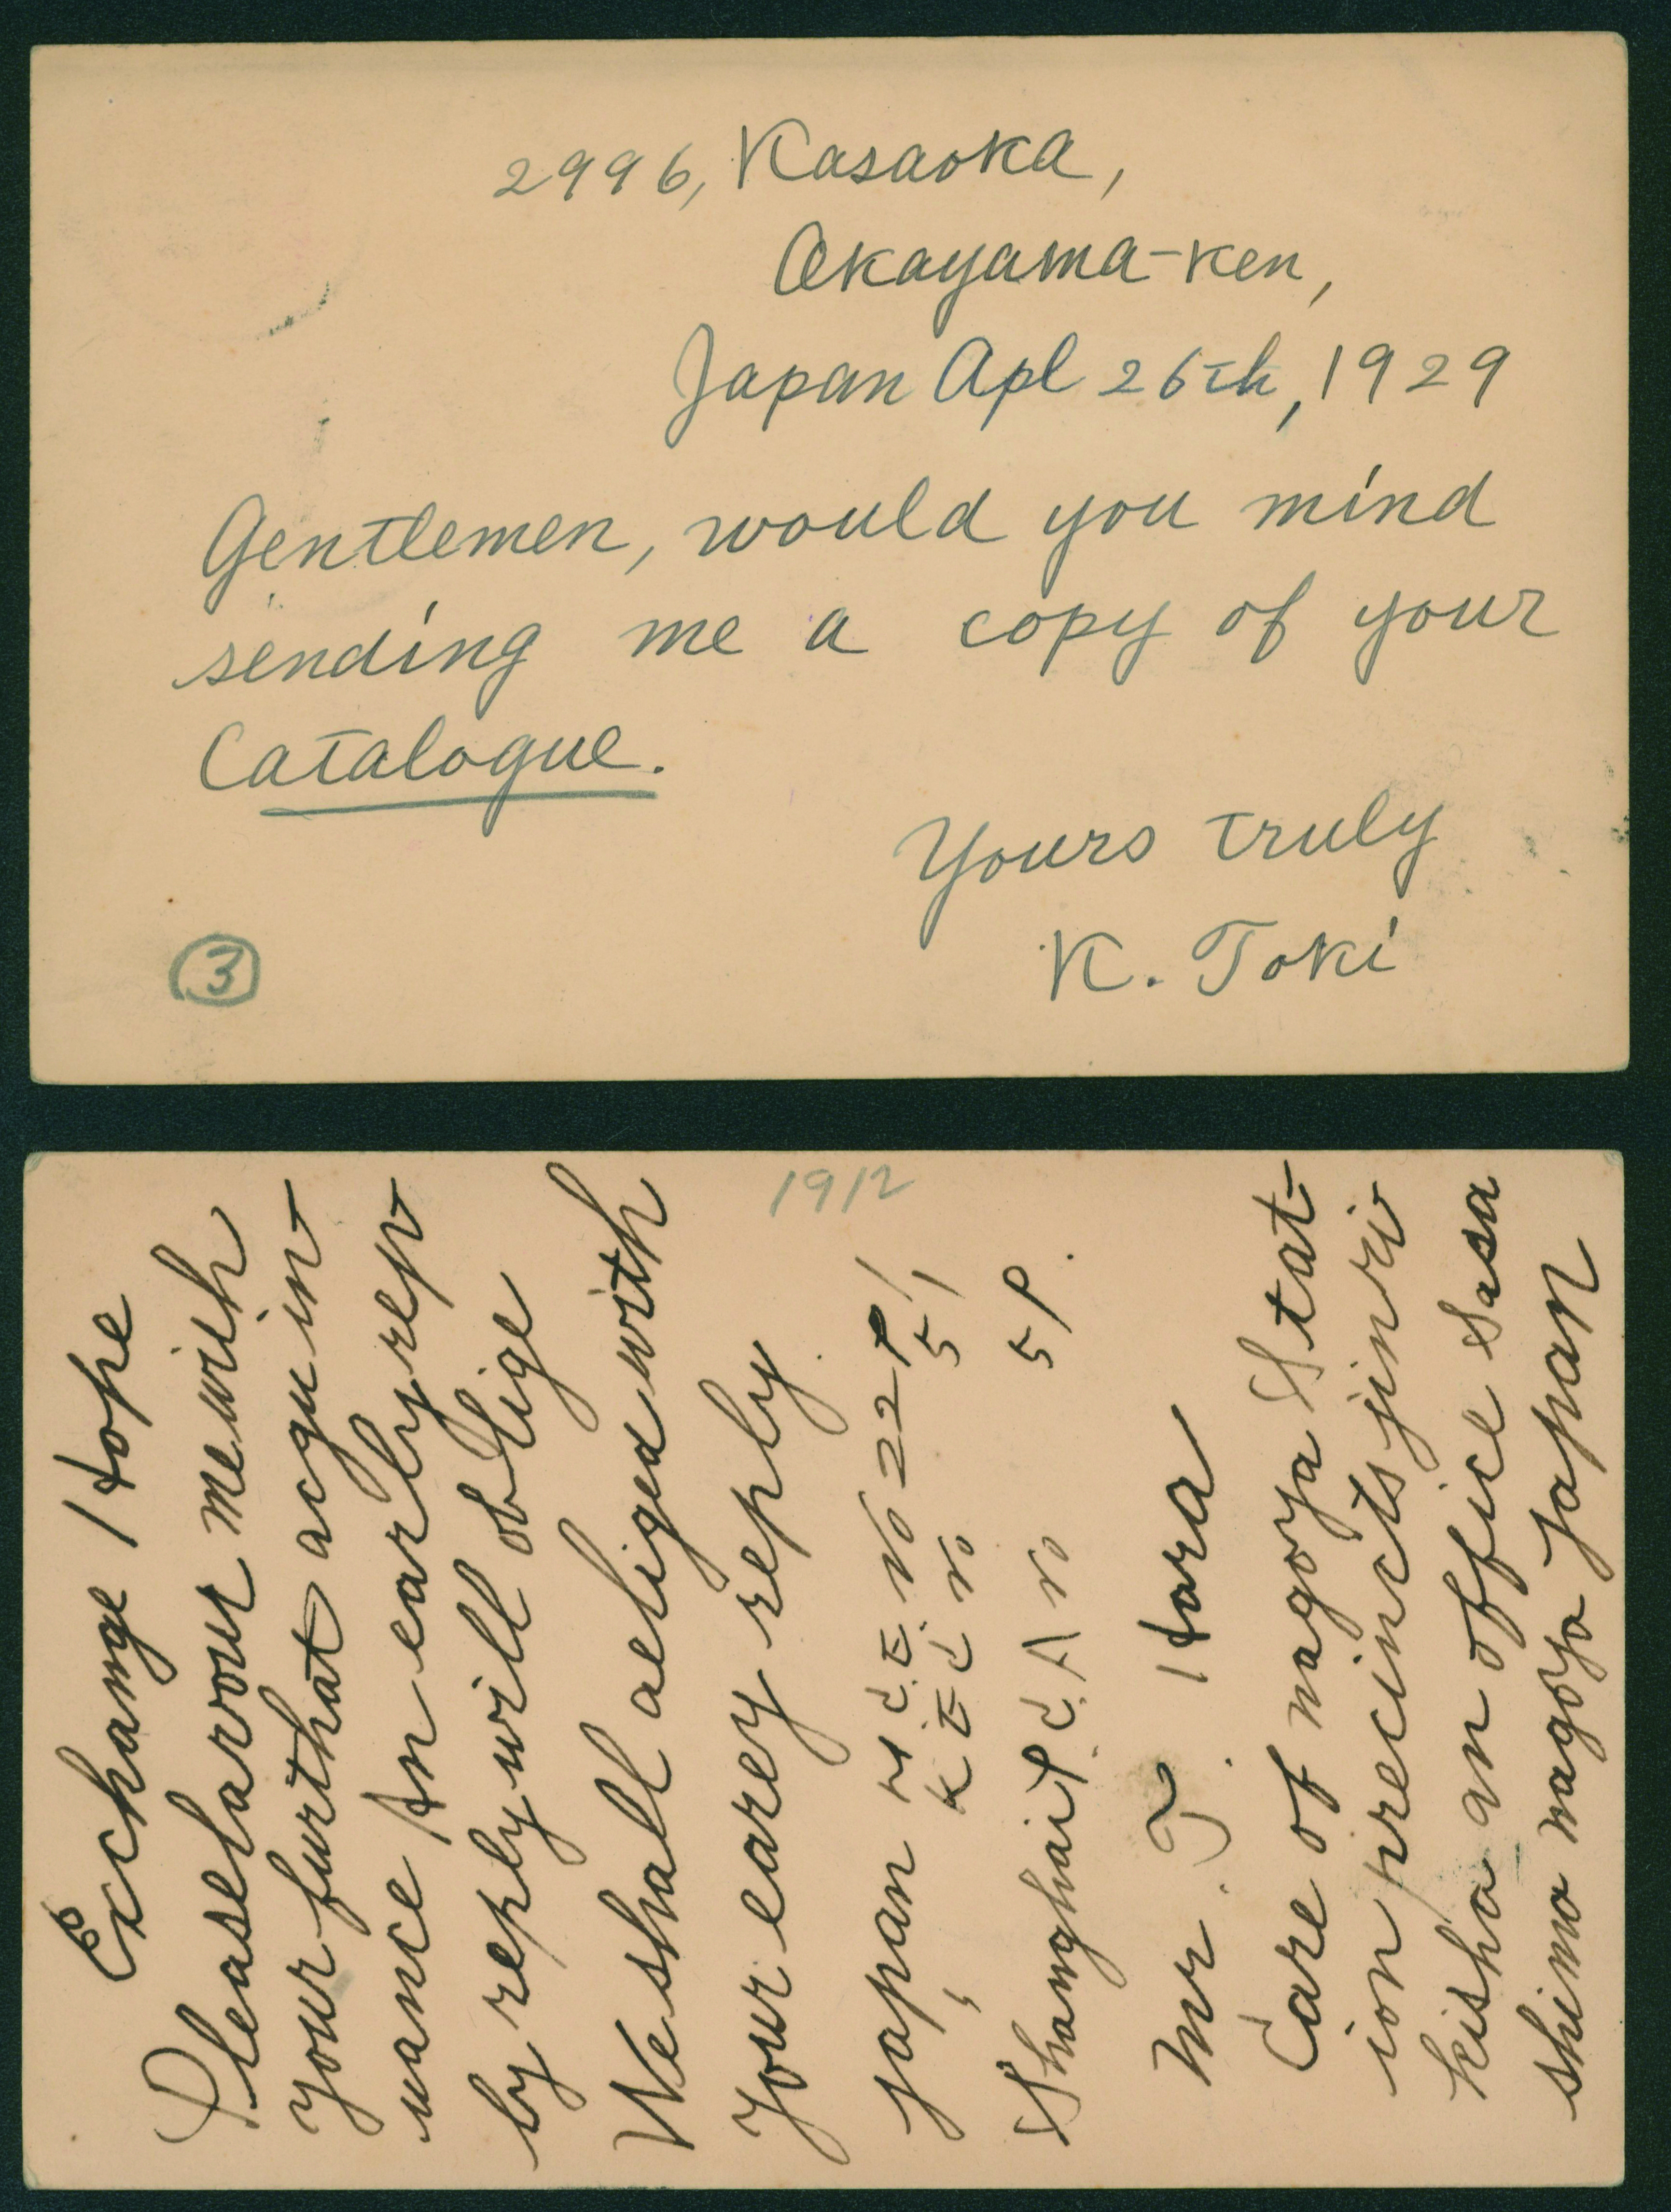 2996, Kasaoka,
Okayama-ken,
Japan Apl 26th, 1929
Gentlemen, would you mind
sending me a copy of your
Catalogue.
Yours truly
K. Toki
3
1912
Exchange I Hope
Please farour me wish
your furthat acguin
uance An early rep
by reply will oblige
We shall aeliged with
your earey reply.
japan No 22
Shanghai
Mr. T. Hara
Care of nagoya Stat-
ion precincts jinri
kisha an office Sasa
shima nagoya japan